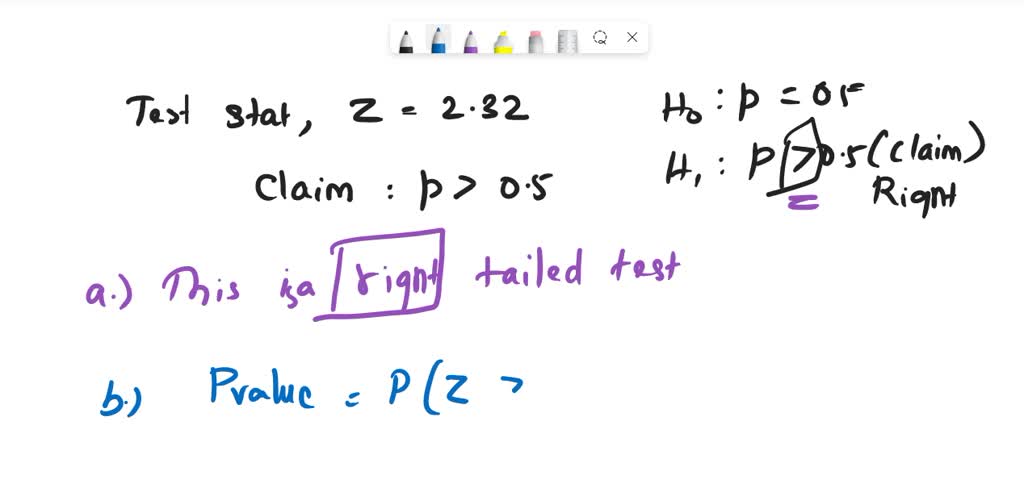 Test stat, Z = 2.32
H0 : p = 0.5
Claim : p > 0.5
H1 : p > 0.5 (Claim)
Right
a.) This is a right tailed test
b.) Pvalue = P(Z >